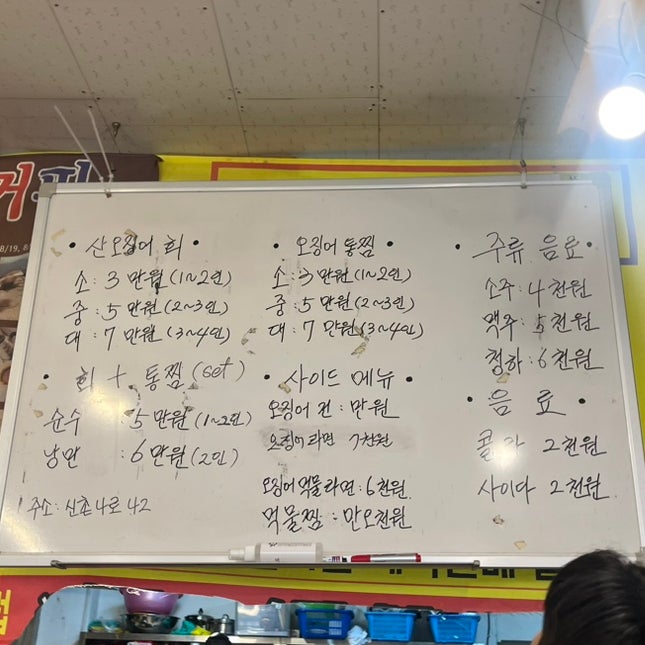 8/19, 8
• 산 오징어 회 •
소 : 3 만원 (1~2인)
중 : 5 만원 (2~3인)
대 : 7 만원 (3~4인)
• 회 + 통찜 (set)
순수 : 5 만원 (1~2인)
낭만 : 6 만원 (2인)
주소 : 신촌4로 42
• 오징어 통찜 •
소 : 3 만원 (1~2인)
중 : 5 만원 (2~3인)
대 : 7 만원 (3~4인)
• 사이드 메뉴 •
오징어 전 : 만원
오징어라면 7천원
오징어 먹물 라면 : 6천원
먹물찜 : 만오천원
• 주류 음료 •
소주 : 4천원
맥주 : 5천원
청하 : 6천원
• 음료 •
콜라 2천원
사이다 2천원